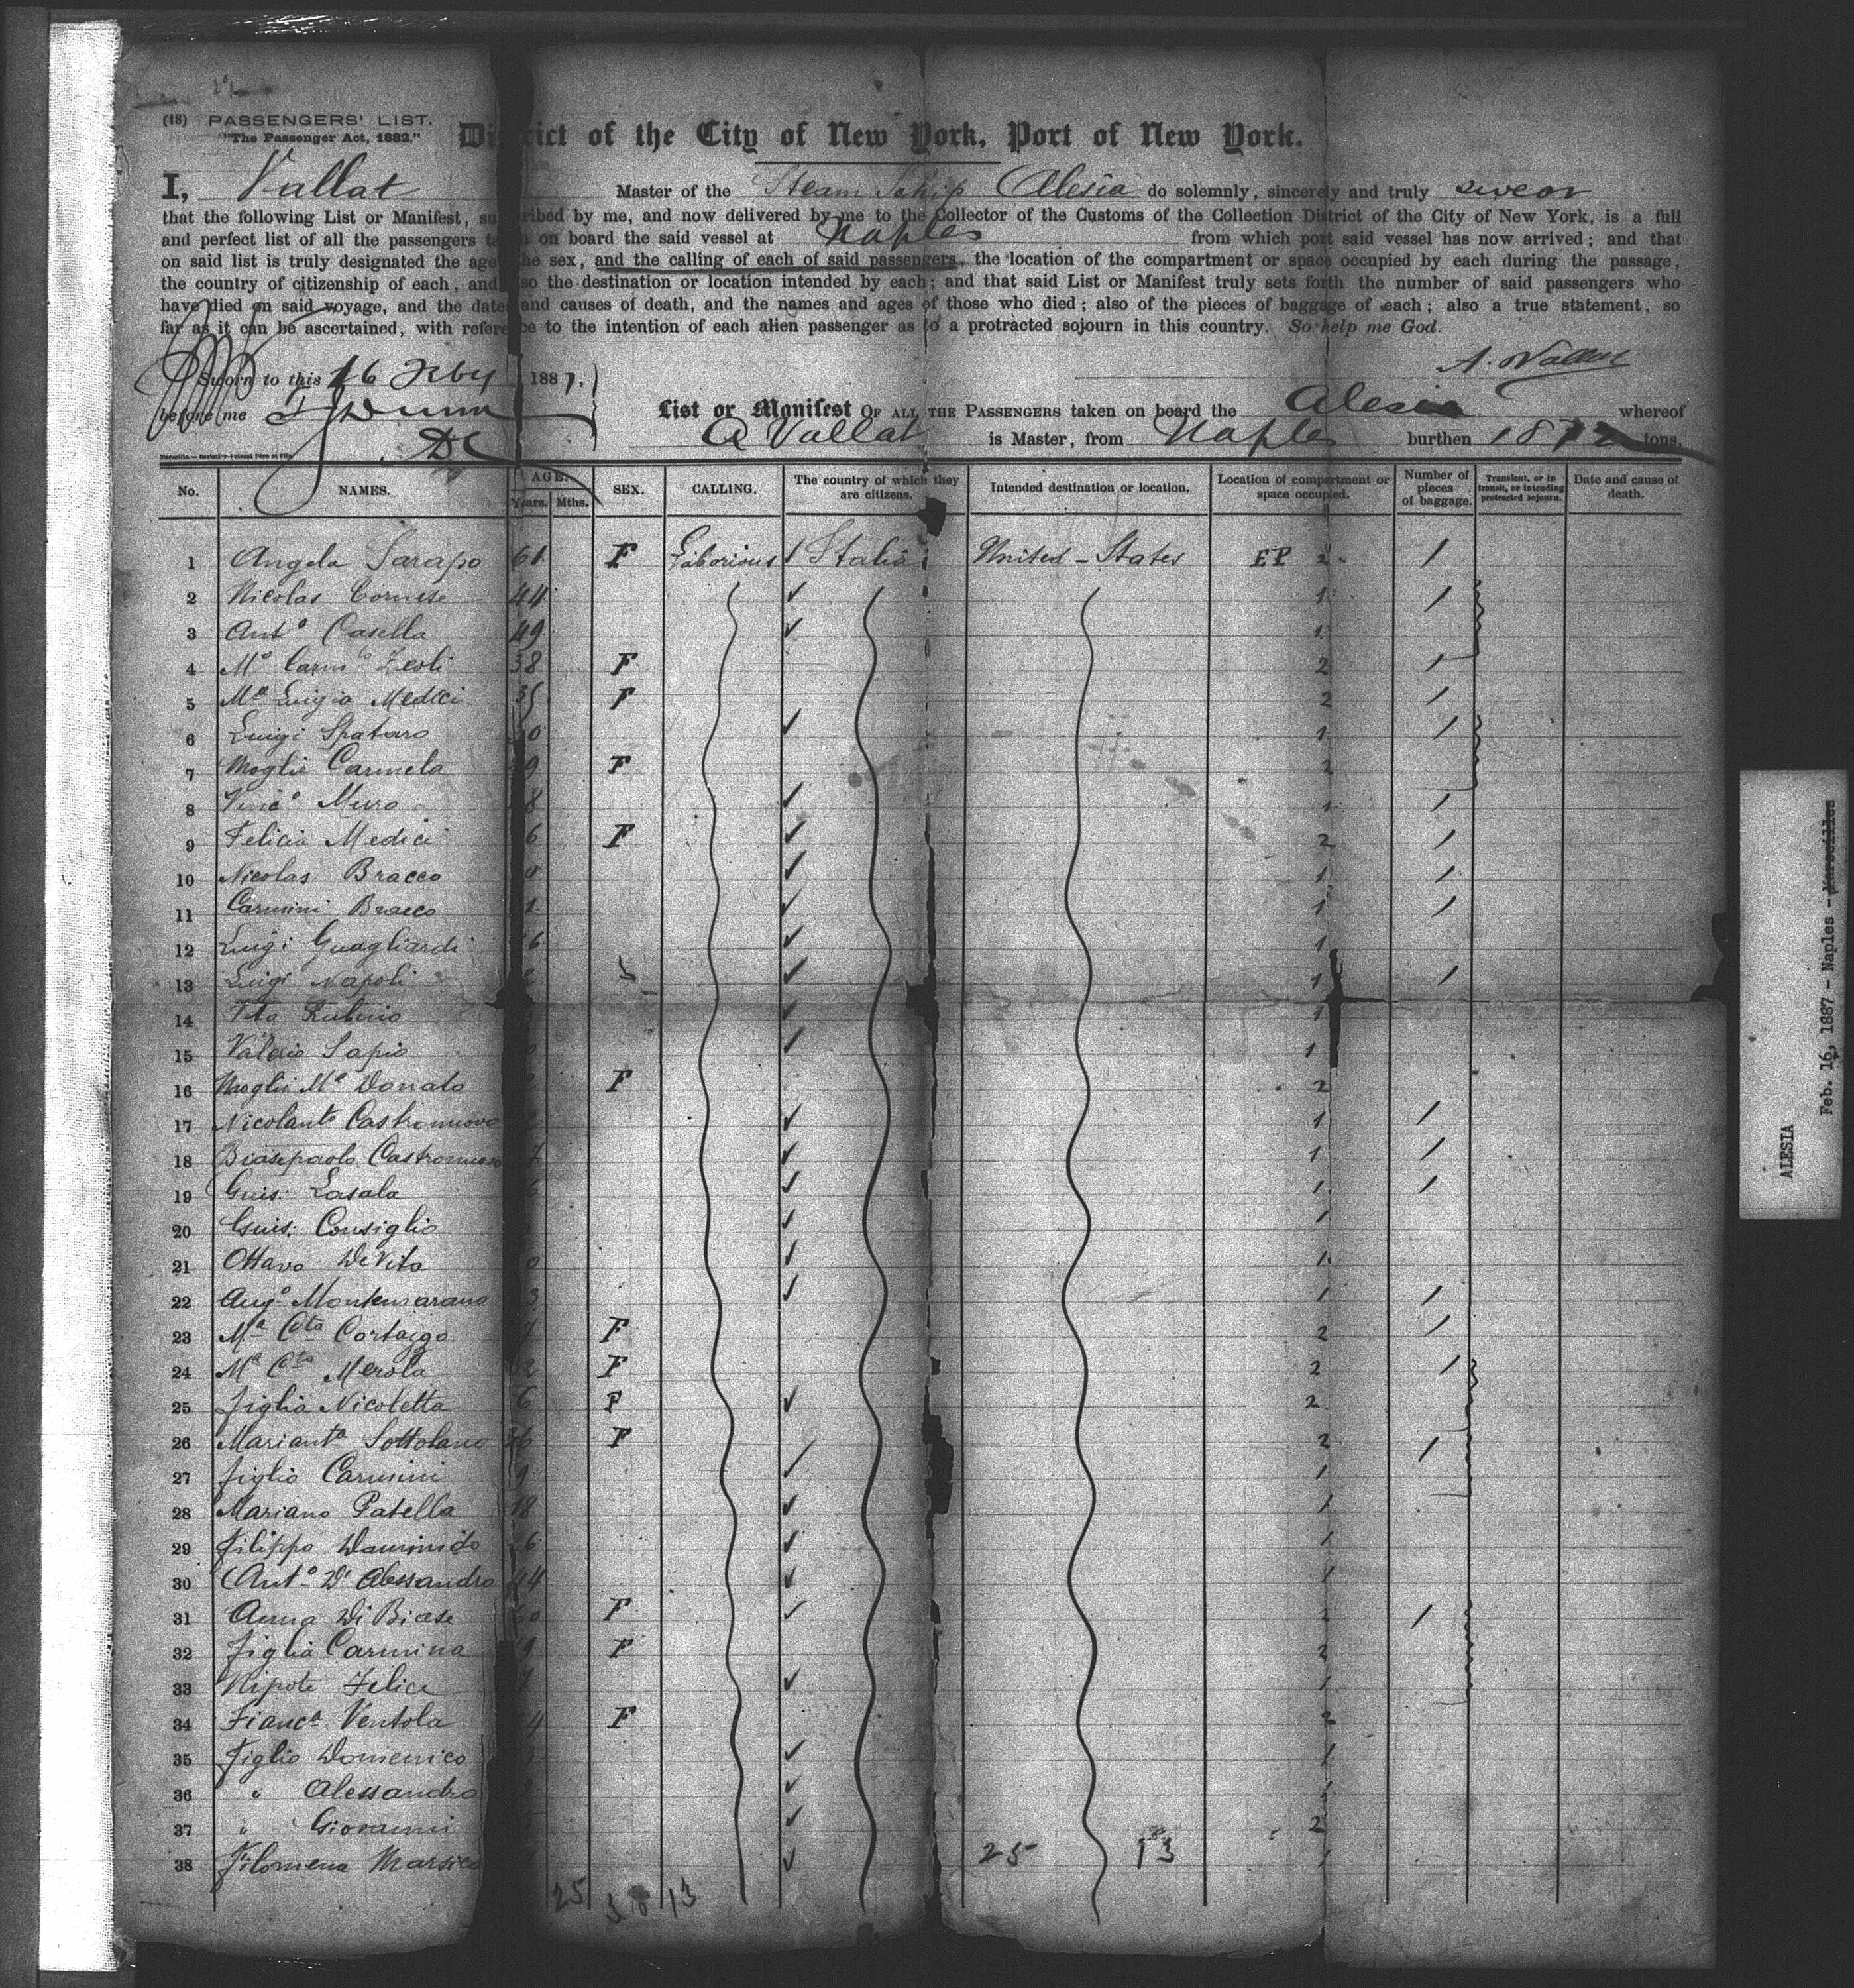 (18) PASSENGERS' LIST.
"The Passenger Act, 1882."
District of the City of New York, Port of New York.
I, Vallat Master of the Steam Schip Alesia do solemnly, sincerely and truly swear
that the following List or Manifest, su ribed by me, and now delivered by me to the Collector of the Customs of the Collection District of the City of New York, is a full
and perfect list of all the passengers ta n on board the said vessel at Naples from which port said vessel has now arrived; and that
on said list is truly designated the age he sex, and the calling of each of said passengers, the location of the compartment or space occupied by each during the passage,
the country of citizenship of each, and so the destination or location intended by each; and that said List or Manifest truly sets forth the number of said passengers who
have died on said voyage, and the dates and causes of death, and the names and ages of those who died; also of the pieces of baggage of each; also a true statement, so
far as it can be ascertained, with reference to the intention of each alien passenger as to a protracted sojourn in this country. So help me God.
A. Vallat
Sworn to this 16 Feby 1887.
before me TJ Dunn
DC
List or Manifest OF ALL THE PASSENGERS taken on board the Alesia whereof
A Vallat is Master, from Naples burthen tons.
No. NAMES. AGE. Years. Mths. SEX. CALLING. The country of which they are citizens. Intended destination or location. Location of compartment or space occupied. Number of pieces of baggage. Transient, or in transit, or intending protracted sojourn. Date and cause of death.
1 Angela Sarapo 61 F Laborious Italia United - States EP 2 1
2 Nicolas Cornese 44 1 1
3 Ant° Casella 49 1
4 M° Carm la Zeoli 38 F 2 1
5 Ma Luigia Medici 35 F 2 1
6 Luigi Spataro 0 1 1
7 Moglie Carmela 9 F 2
8 Vinc° Muro 8 1 1
9 Felicia Medici 6 F 2 1
10 Nicolas Bracco 0 1 1
11 Carmini Bracco 1 1 1
12 Luigi Guagliardi 6 1
13 Luigi Napoli 2 1 1
14 Vito Rubino 1
15 Valerio Sapio 1
16 Moglie Ma Donato F 2
17 Nicolanto Castronuovo 1 1
18 Biasepaolo Castronuovo 7 1 1
19 Guis: Lasala 6 1 1
20 Guis: Consiglio 1
21 Ottavo De Vito 0 1
22 Aug° Montemarano 3 1 1
23 Ma Cta Cortazzo 7 F 2 1
24 Ma Cta Merola 2 F 2 1
25 figlia Nicoletta 6 F 2
26 Marianta Sottolano 6 F 2 1
27 figlio Carmini 9 1
28 Mariano Patella 18 1
29 Filippo 26 1
30 Ant° D'Alessandro 44 1
31 Anna Di Biase 0 F 1
32 figlia Carmina 9 F 2
33 Nipote Felice 7 1
34 Franca Ventola 4 F 2
35 Figlio Domenico 1
36 " Alessandro
37 " Giovanni 2
38 Filomena Marsico 25 13 1
25 13
ALESIA
Feb. 16, 1887 - Naples - Marseilles